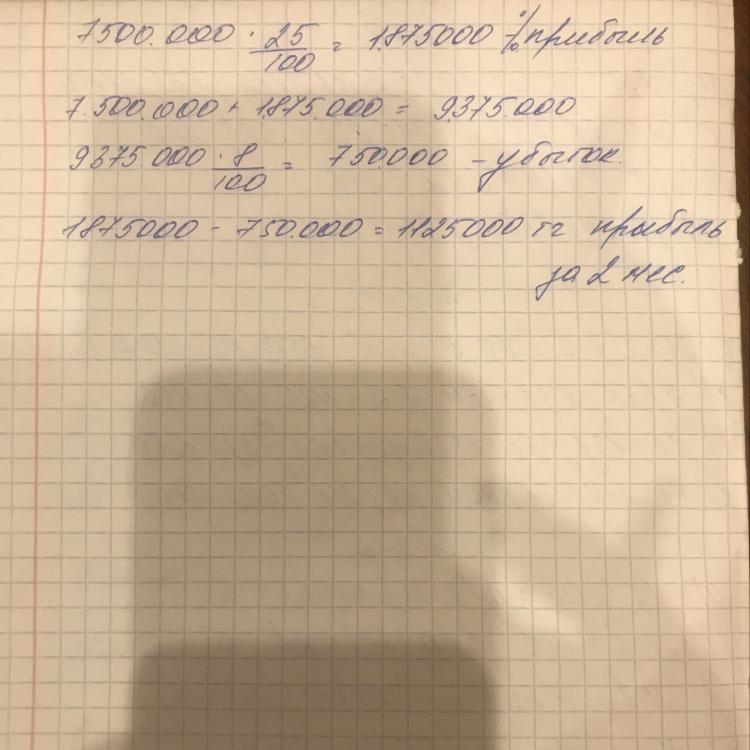 7500.000 · 25/100 = 1.875000 % прибыль
7.500.000 + 1.875.000 = 9.375.000
9375.000 · 8/100 = 750.000 - убыток.
1875000 - 750.000 = 1125000 тг прибыль
за 2 мес.